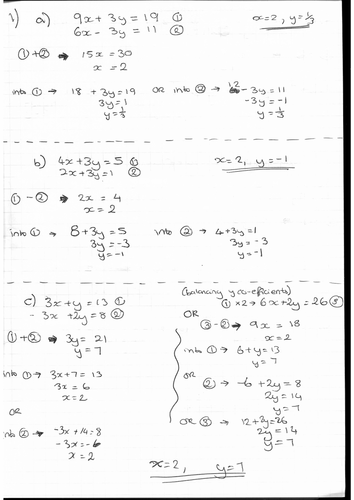 1) a) 9x + 3y = 19 ①
6x - 3y = 11 ②
x=2, y=⅓
①+② → 15x = 30
x = 2
into ① → 18 + 3y = 19
3y = 1
y = ⅓
OR into ② → 12 - 3y = 11
-3y = -1
y = ⅓
b) 4x + 3y = 5 ①
2x + 3y = 1 ②
x = 2, y = -1
① - ② → 2x = 4
x = 2
into ① → 8 + 3y = 5
3y = -3
y = -1
into ② → 4 + 3y = 1
3y = -3
y = -1
c) 3x + y = 13 ①
- 3x + 2y = 8 ②
①+② → 3y = 21
y = 7
into ① → 3x + 7 = 13
3x = 6
x = 2
OR
into ② → -3x + 14 = 8
-3x = -6
x = 2
(balancing y co-efficients)
① × 2 → 6x + 2y = 26 ③
OR
③ - ② → 9x = 18
x = 2
into ① → 6 + y = 13
y = 7
OR
② → -6 + 2y = 8
2y = 14
y = 7
OR ③ → 12 + 2y = 26
2y = 14
y = 7
x = 2, y = 7